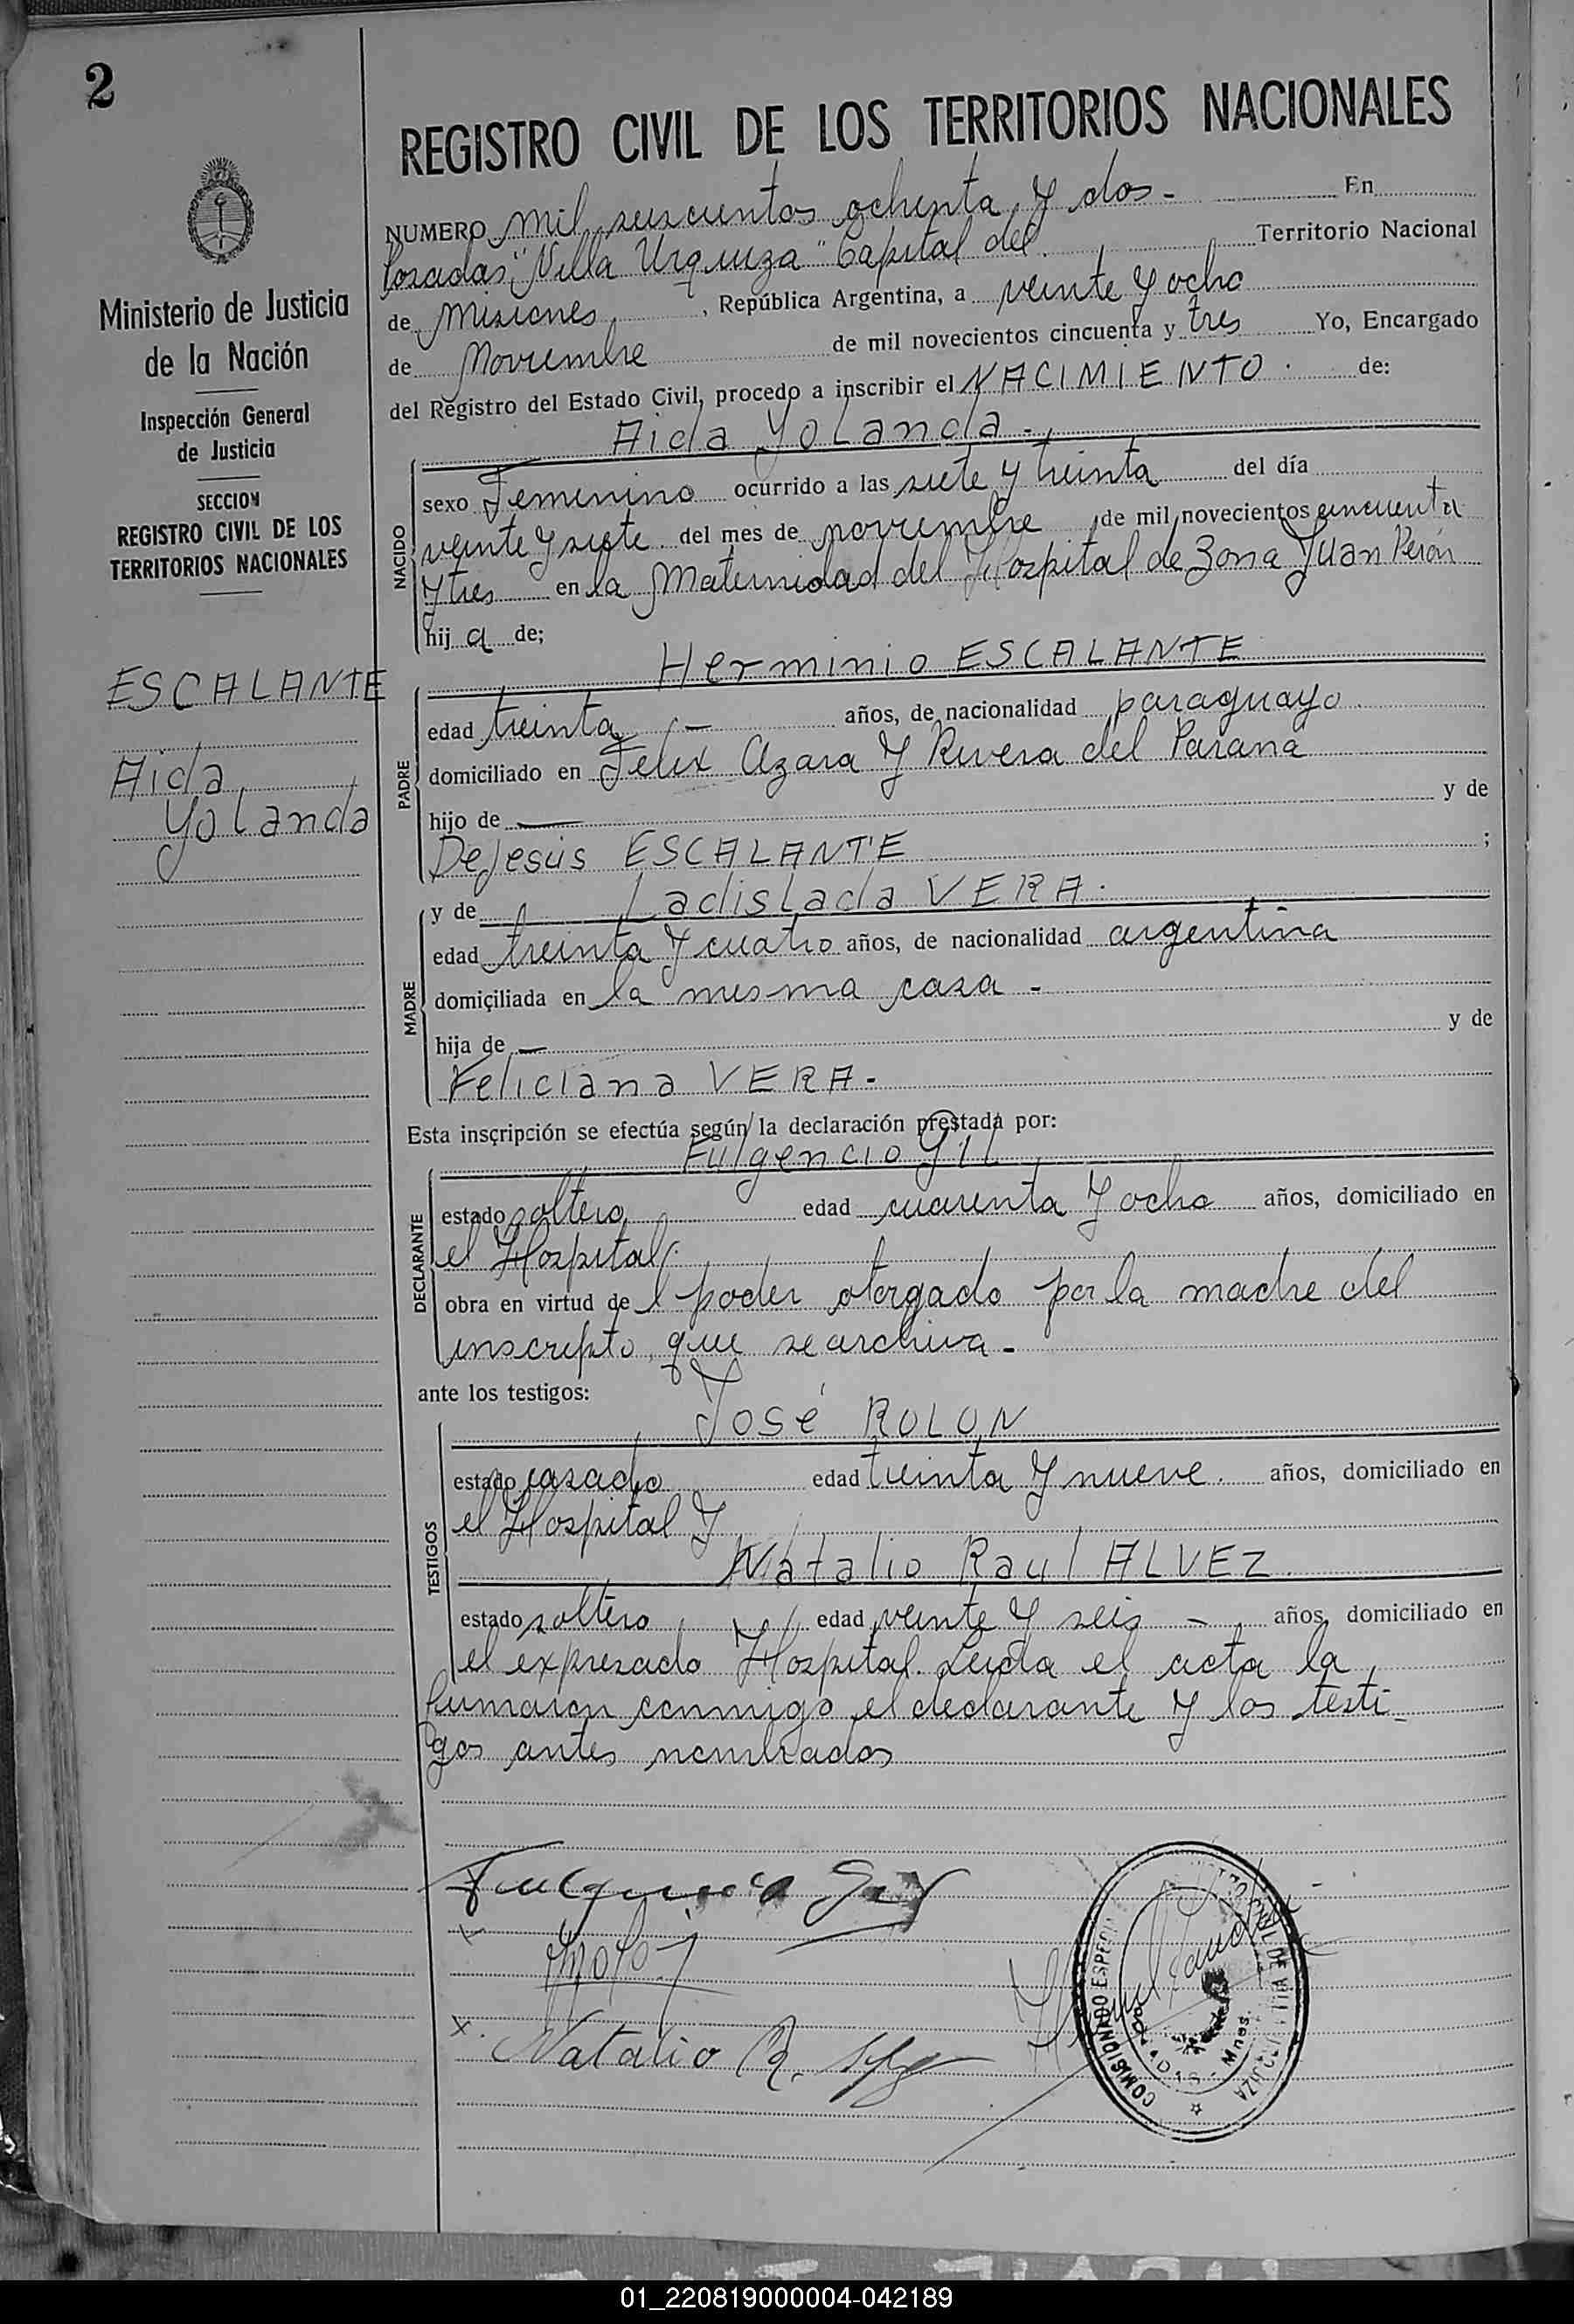 2
REGISTRO CIVIL DE LOS TERRITORIOS NACIONALES
NUMERO mil seiscientos ochenta y dos - En
Posadas "Villa Urquiza" Capital del Territorio Nacional
de Misiones, República Argentina, a veinte y ocho
de Noviembre de mil novecientos cincuenta y tres Yo, Encargado
del Registro del Estado Civil, procedo a inscribir el NACIMIENTO. de:
Aida Yolanda.-
NACIDO
sexo Femenino ocurrido a las siete y treinta del día
veinte y siete del mes de noviembre de mil novecientos cincuenta
y tres en la Maternidad del Hospital de Zona Juan Perón
hij a de;
Herminio ESCALANTE
PADRE
edad treinta - años, de nacionalidad paraguayo
domiciliado en Felix Azara y Rivera del Paraná
hijo de — y de
DeJesús ESCALANTE ;
y de Ladislada VERA.
MADRE
edad treinta y cuatro años, de nacionalidad argentina
domiciliada en la misma casa -
hija de — y de
Feliciana VERA-
Esta inscripción se efectúa según la declaración prestada por:
Fulgencio Gil
DECLARANTE
estado soltero edad cuarenta y ocho años, domiciliado en
el Hospital.
obra en virtud de l poder otorgado por la madre del
inscripto que se archiva -
ante los testigos:
José ROLON
TESTIGOS
estado casado edad treinta y nueve. años, domiciliado en
el Hospital y
Natalio Raul ALVEZ.
estado soltero edad veinte y seis - años, domiciliado en
el expresado Hospital. Leida el acta la
firmaron conmigo el declarante y los testi-
gos antes nombrados
Fulgencio Gil
Natalio R.
COMISIONADO ESPECIAL
REGISTRO CIVIL DE VILLA URQUIZA
POSADAS - Mnes.
Ministerio de Justicia
de la Nación
Inspección General
de Justicia
SECCION
REGISTRO CIVIL DE LOS
TERRITORIOS NACIONALES
ESCALANTE
Aida
Yolanda
01_220819000004-042189